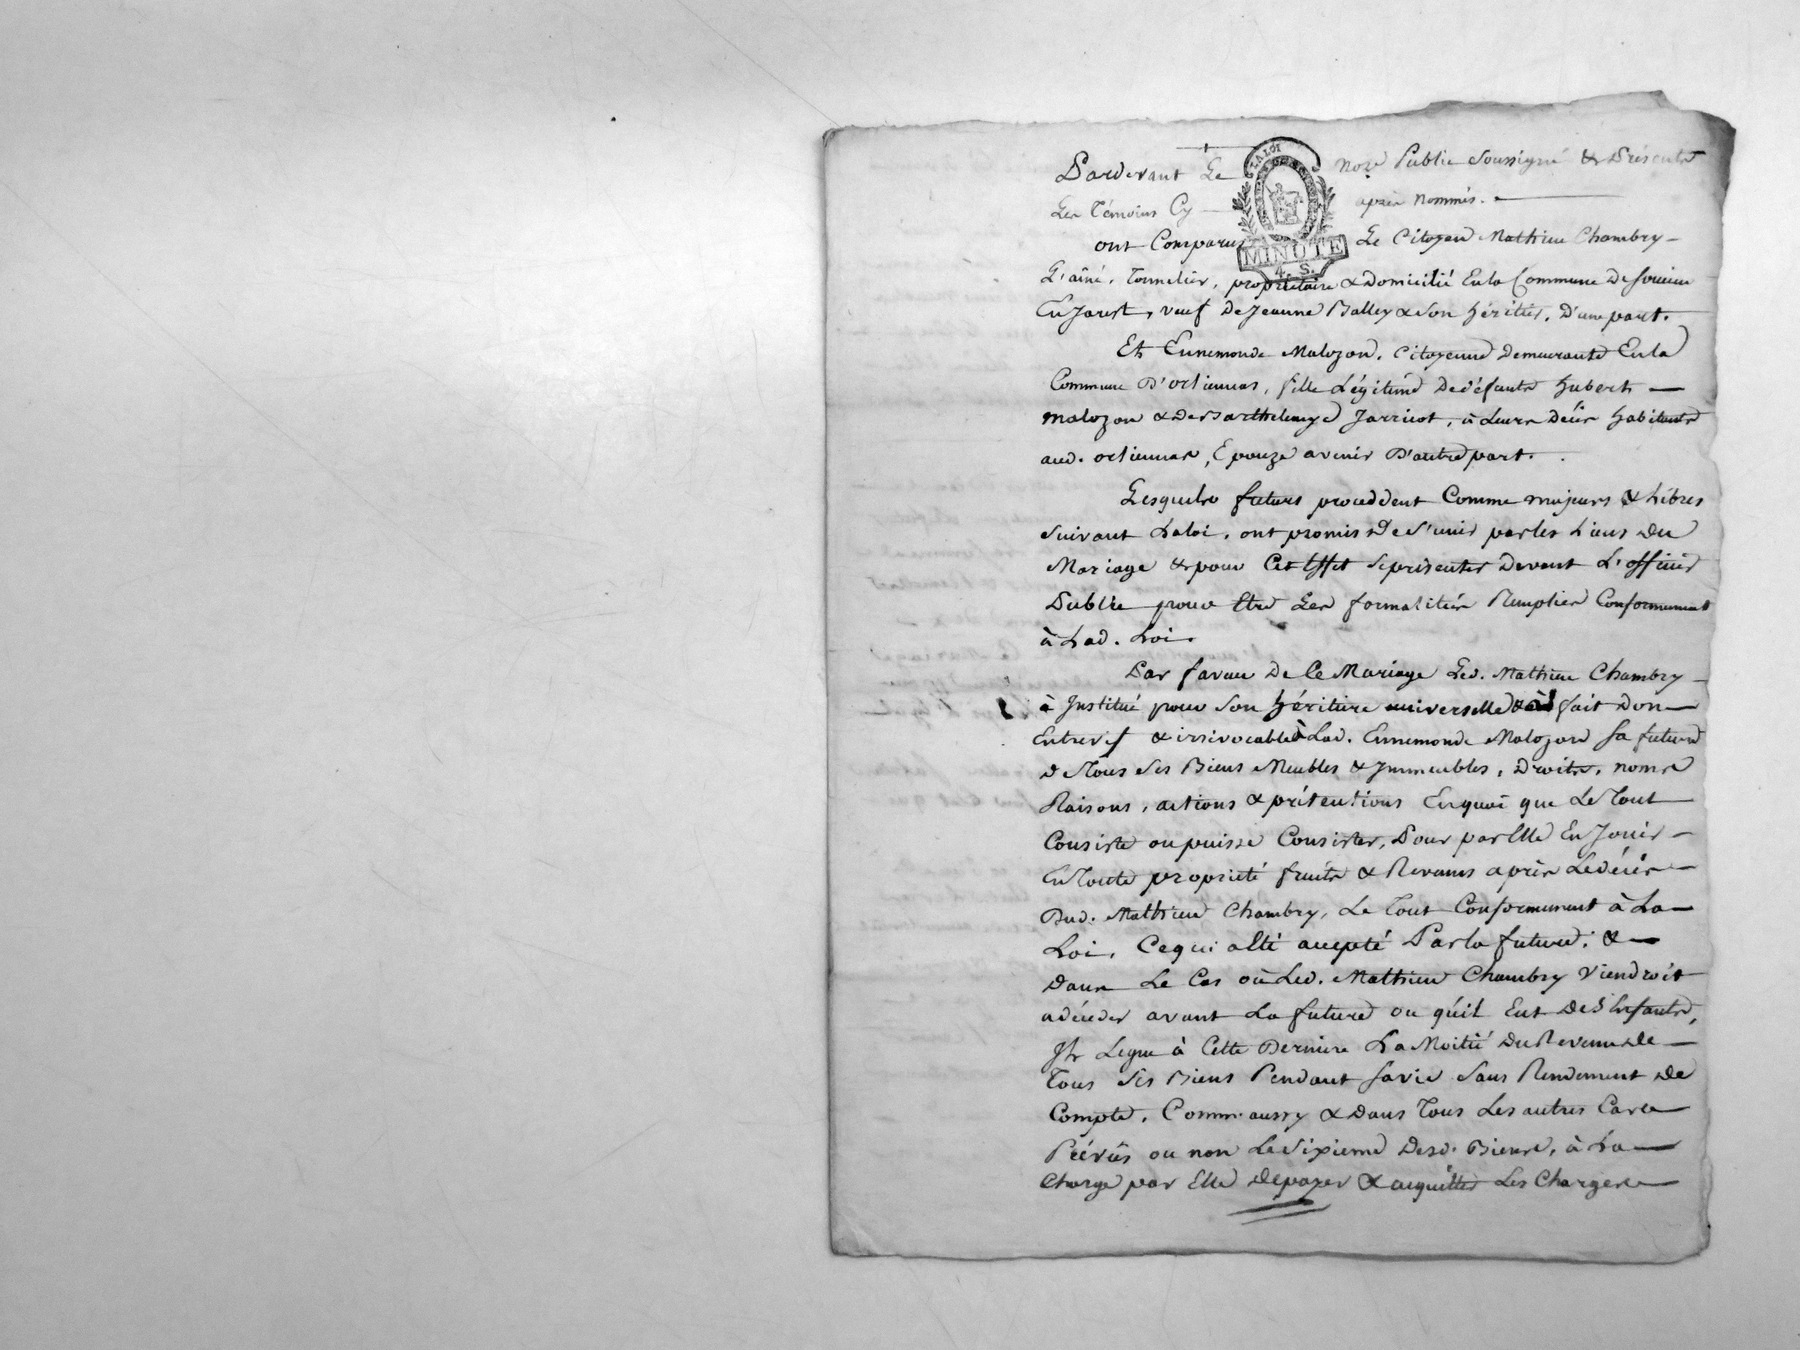 Pardevant Le No.re Public Soussigné & Présents
Les Témoins Cy après Nommés.
LA LOI
MINUTE
4. S.
ont Comparus Le Citoyen Mathieu Chambry
L'aîné, Tonnelier, propriétaire & Domicilié En la Commune De Soucieu
En Jarest, veuf De Jeanne Balley & Son héritier, D'une part.
Et Ennemonde Malozon, Citoyenne demeurante En la
Commune D'orliennas, fille Légitime De défunts hubert
malozon & De Barthelemye Jarricot, à Leurs Décès habitants
aud. orliennas, Epouze avenir D'autre part.
Lesquels futurs proceddent Comme majeurs & Libres
Suivant La loi, ont promis De S'unir par les Liens Du
Mariage & pour Cet Effet Se présenter Devant L'officier
Public pour Etre Les formalités Remplies Conformement
à Lad. Loi.
Par faveur De Ce Mariage Led. Mathieu Chambry
à Institué pour Son héritière universelle & à fait Don
Entrevif & irrévocable à Lad. Ennemonde Malozon Sa future
De Tous Ses Biens Meubles & Immeubles, Droits, noms
Raisons, actions & prétentions En quoi que Le Tout
Consiste ou puisse Consister, Pour par Elle En Jouir
En Toute propriété fruits & Revenus après Le décès
Dud. Mathieu Chambry, Le Tout Conformement à La
Loi, Ce qui a Eté accepté Par la future; &
Dans Le Cas où Led. Mathieu Chambry Viendroit
a décéder avant La future ou qu'il Eut Des Enfants,
Il Legue à Cette Derniere La Moitié Du Revenu De
Tous Ses Biens Pendant Sa vie Sans Rendement De
Compte, Comm'aussy & Dans Tous Les autres Cas
Prévûs ou non Le Sixieme Desd. Biens, à La
Charge par Elle De payer & acquitter Les Charges